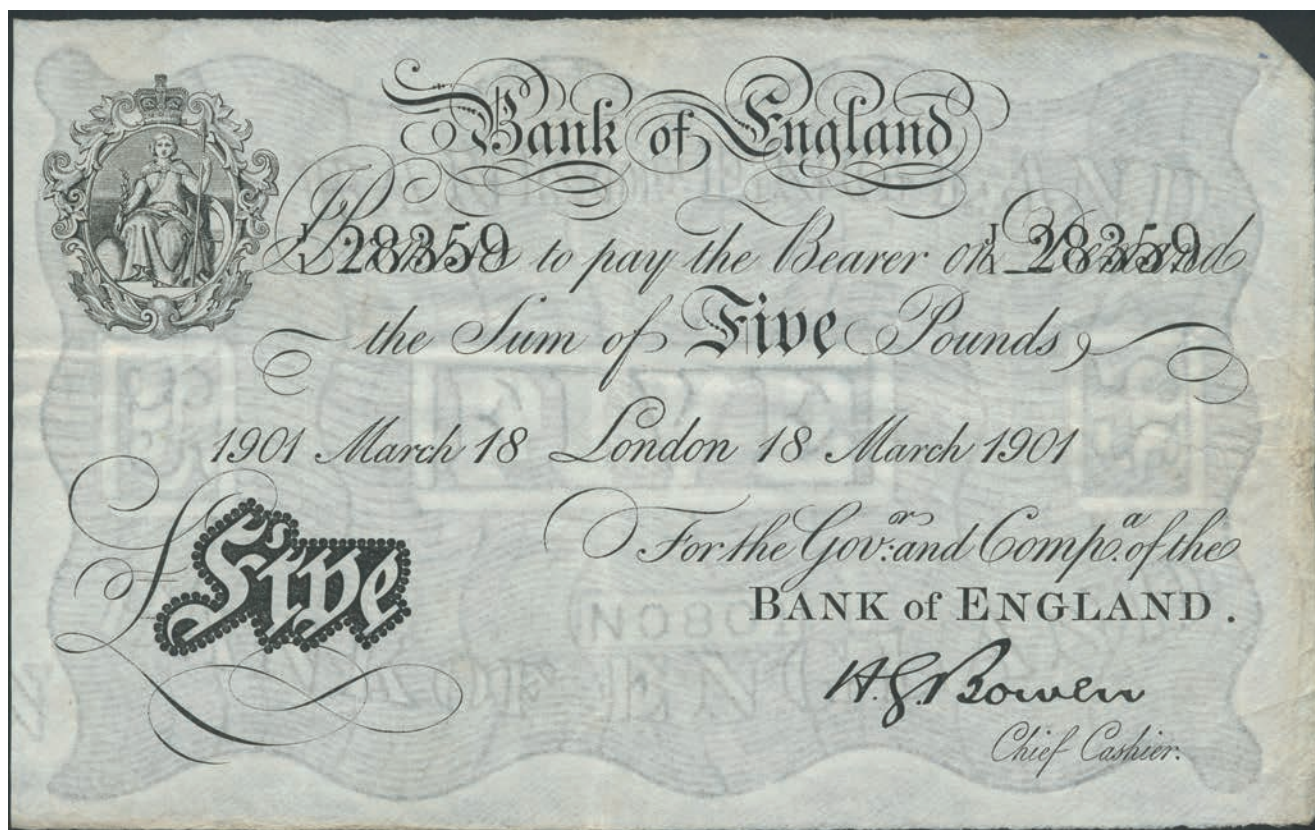 Bank of England
I Promise to pay the Bearer on Demand
28359 28359
the Sum of Five Pounds,
1901 March 18 London 18 March 1901
£Five
For the Gov.r and Comp.a of the
BANK of ENGLAND.
H.G. Bowen
Chief Cashier.